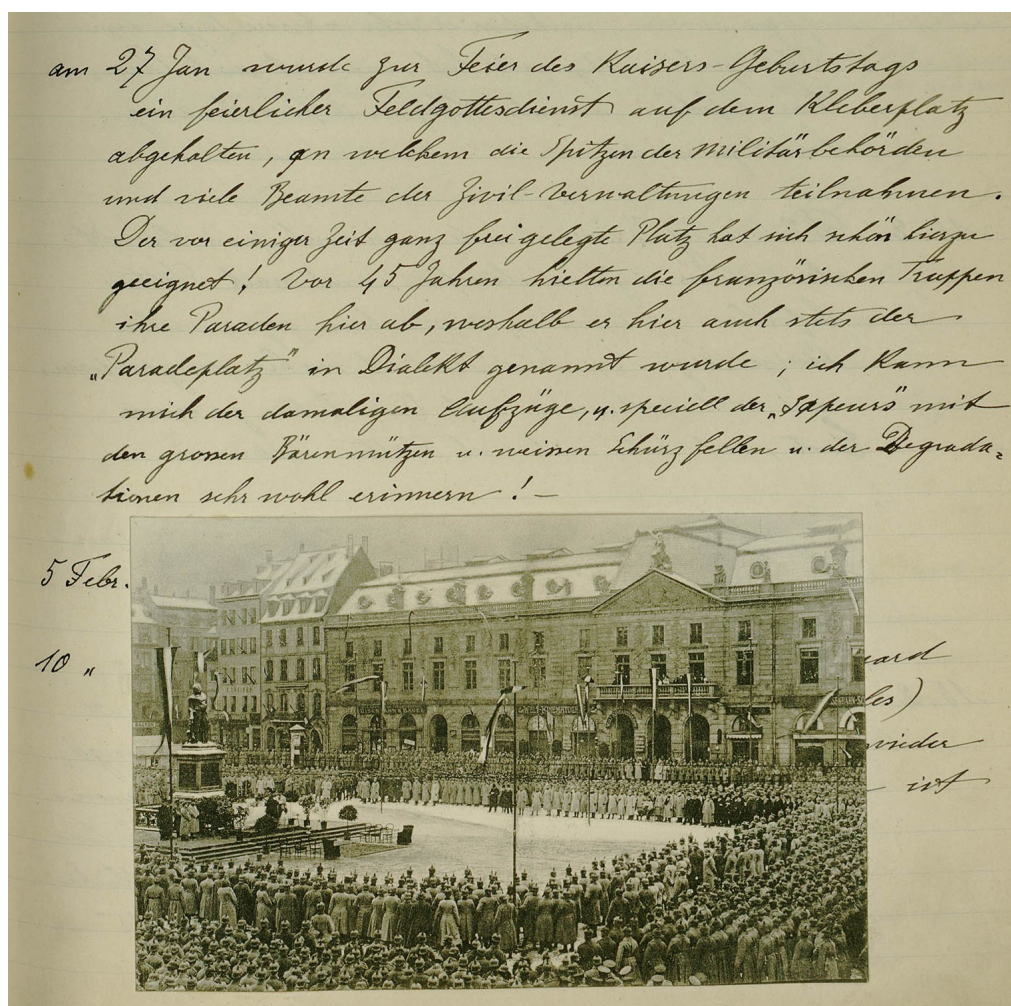 am 27 Jan wurde zur Feier des Kaisers-Geburtstags
ein feierlicher Feldgottesdienst auf dem Kleberplatz
abgehalten, an welchem die Spitzen der Militärbehörden
und viele Beamte der Zivil-Verwaltungen teilnahmen.
Der vor einiger Zeit ganz freigelegte Platz hat sich schön hierzu
geeignet! Vor 45 Jahren hielten die französischen Truppen
ihre Paraden hier ab, weshalb er hier auch stets der
„Paradeplatz" in Dialekt genannt wurde; ich kann
mich der damaligen Aufzüge, u. speciell der „Sapeurs" mit
den grossen Bärenmützen u. weissen Schürzfellen u. der Degrada=
tionen sehr wohl erinnern! –
5 Febr.
10 "
les)
wieder
ist